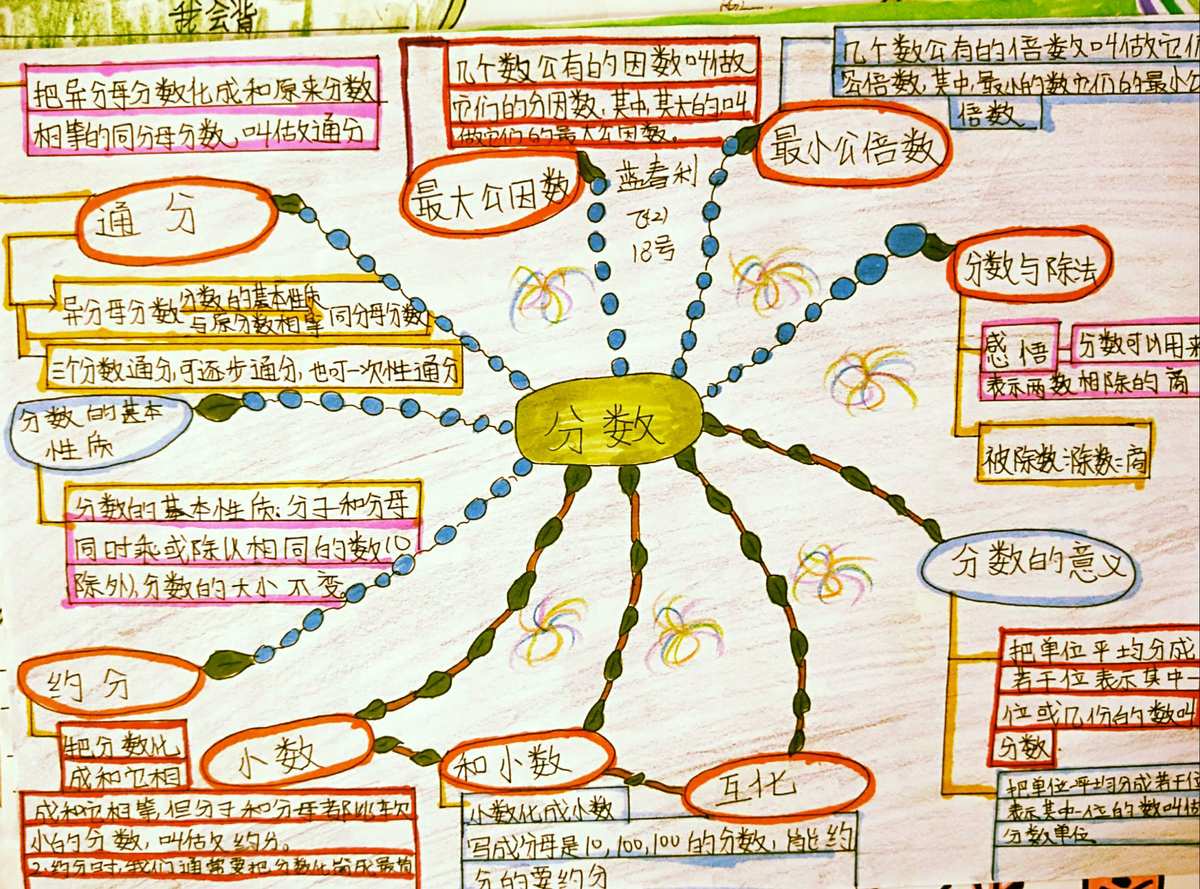 我会背
把异分母分数化成和原来分数
相等的同分母分数,叫做通分
通分
异分母分数 分数的基本性质 同分母分数
与原分数相等
三个分数通分,可逐步通分,也可一次性通分
几个数公有的因数叫做
它们的公因数,其中,其大的叫
做它们的最大公因数。
最大公因数
蓝春利
18号
几个数公有的倍数叫做它们
公倍数,其中,最小的数它们的最小公
倍数
最小公倍数
分数与除法
感悟
分数可以用来
表示两数相除的商
被除数÷除数=商
分数
分数的基本
性质
分数的基本性质:分子和分母
同时乘或除以相同的数(0
除外),分数的大小不变。
约分
把分数化
成和它相
成和它相等,但分子和分母都比较
小的分数,叫做约分。
2.约分时,我们通常要把分数化简成最简
小数
和小数
小数化成小数
写成分母是10,100,100的分数,能约
分的要约分
互化
分数的意义
把单位平均分成
若干位表示其中一
位或几份的数叫
分数.
把单位平均分成若干位
表示其中一位的数叫做
分数单位